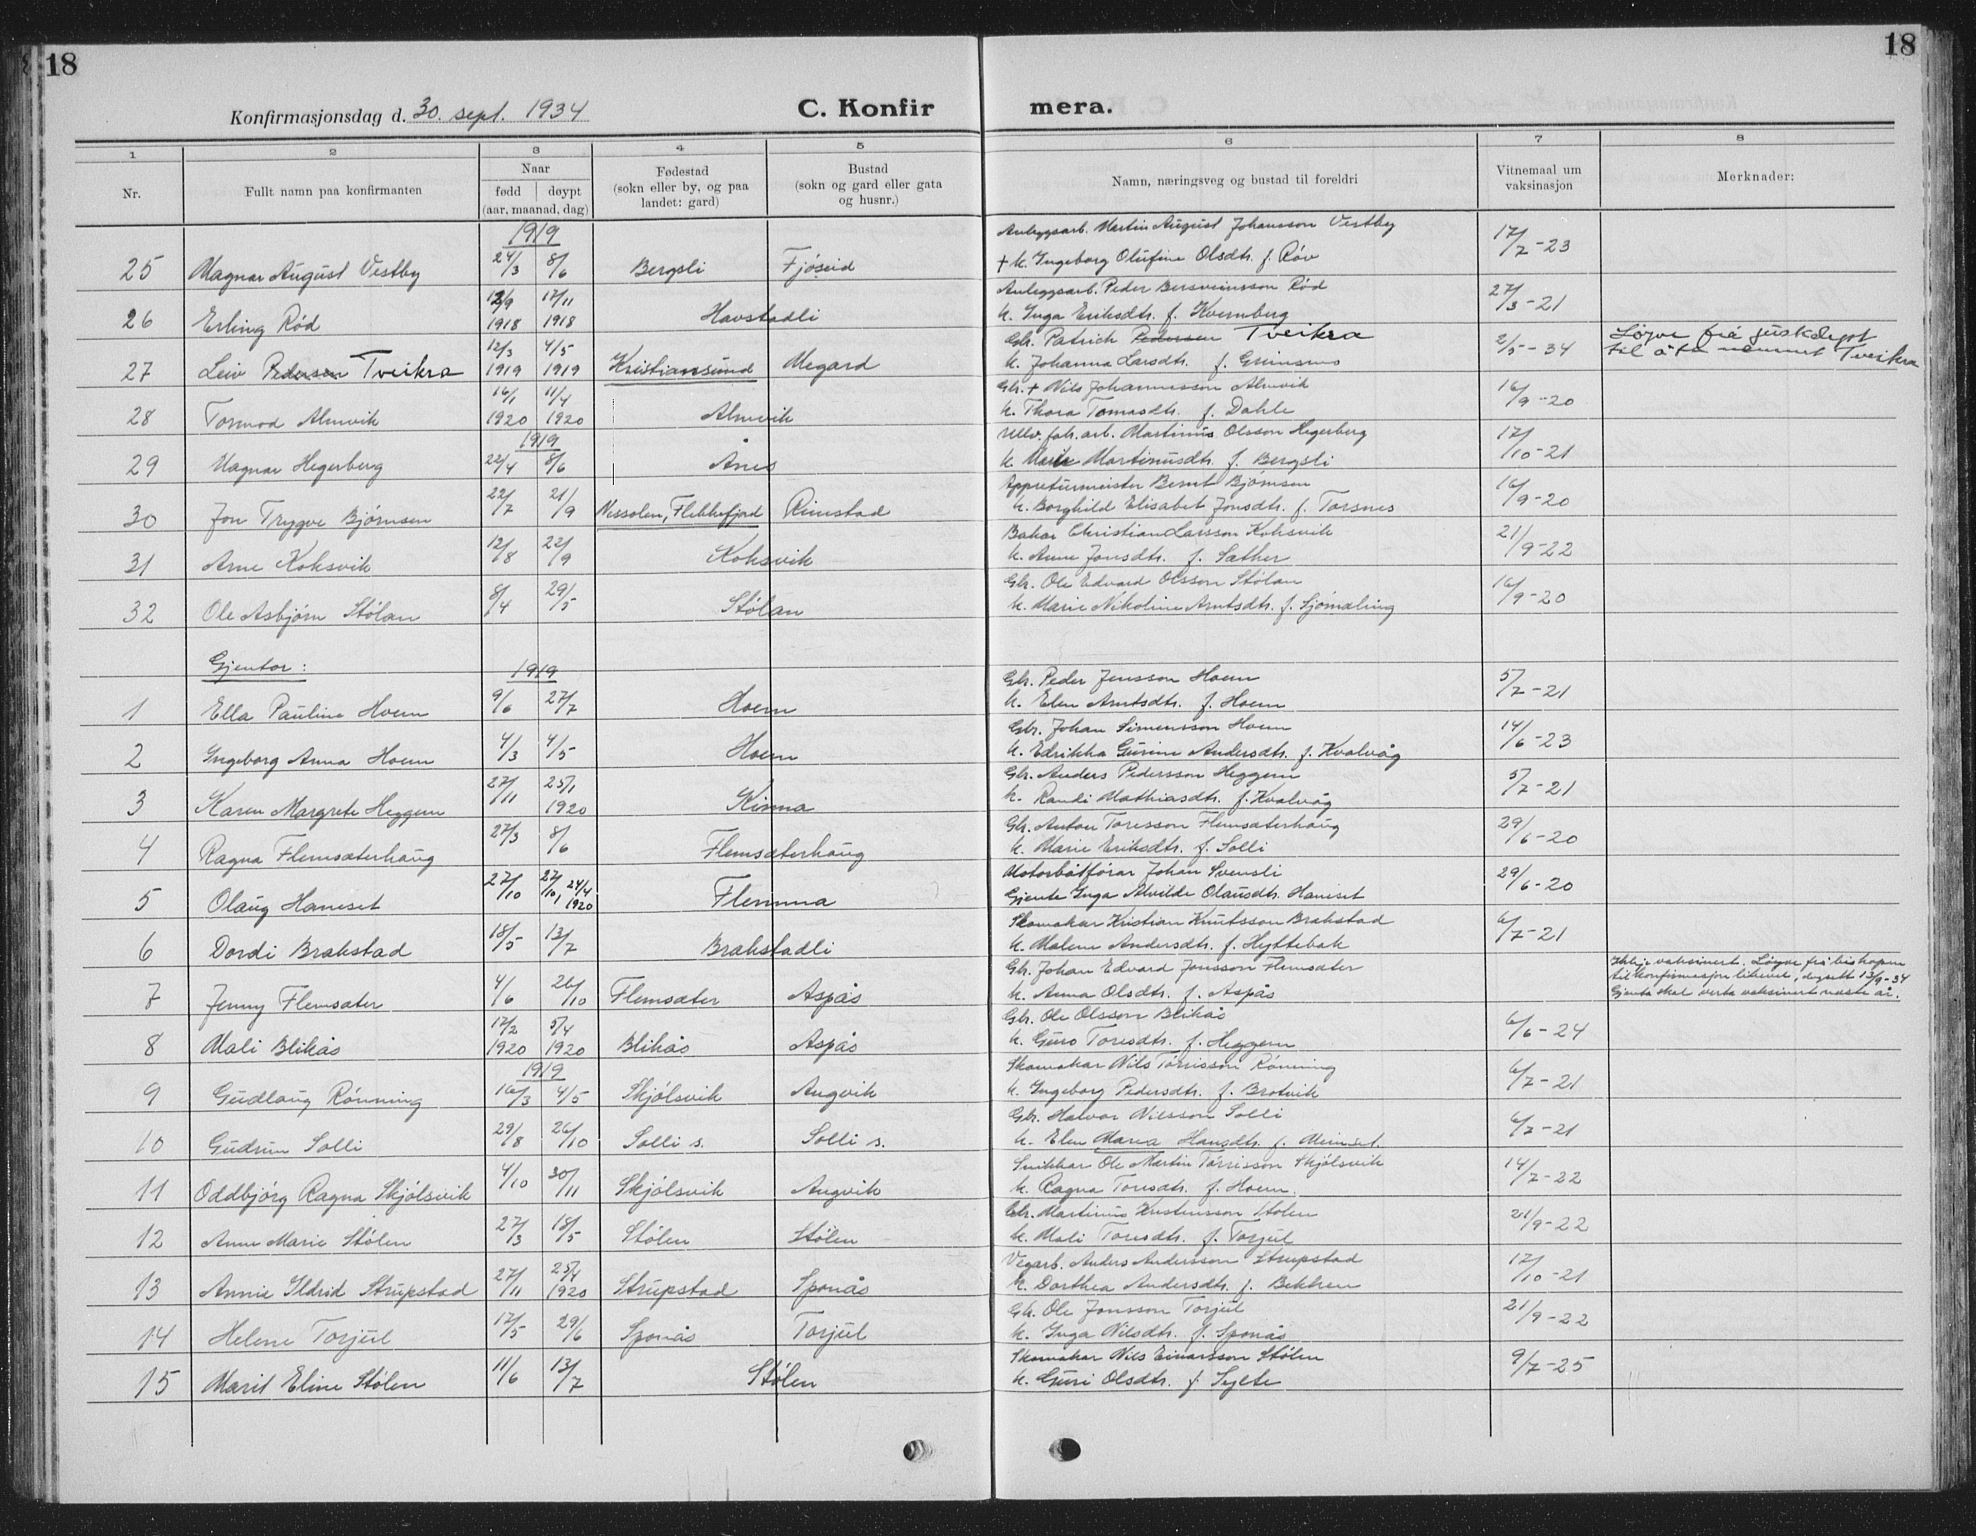 18
18
Konfirmasjonsdag d. 30. sept. 1934
C. Konfir
mera.
1 2 3 4 5 6 7 8
Nr.
Fullt namn paa konfirmanten
Naar
fødd døypt
(aar, maanad, dag)
Fødestad
(sokn eller by, og paa
landet: gard)
Bustad
(sokn og gard eller gata
og husnr.)
Namn, næringsveg og bustad til foreldri
Vitnemaal um
vaksinasjon
Merknader:
1919
Anleggsarb. Martin August Johansson Vestby
25 Magnar August Vestby 24/3 8/6 Bergsli Fjøseid + k. Ingeborg Olufine Olsdtr. f. Røv 17/7-23
Anleggsarb. Peder Bersveinsson Rød
26 Erling Rød 12/9 1918 17/11 1918 Havstadli k. Inga Eriksdtr. f. Kvernberg 27/3-21
Gbr. Patrick Pedersen Tveikra
27 Leiv Pedersen Tveikra 12/3 1919 4/5 1919 Kristiansund Megard k. Johanna Larsdtr. f. Grimsmo 2/5-34 Løyve frå justisdept
til å ta namnet Tveikra
Gbr. + Nils Johannesson Almvik
28 Tormod Almvik 16/1 1920 11/4 1920 Almvik k. Thora Tomasdtr. f. Dahle 16/9-20
1919
Ullv. fabr. arb. Martinus Olsson Hegerberg
29 Magnar Hegerberg 22/4 8/6 Ånes k. Marie Martinusdtr. f. Bergsli 17/10-21
Appreturmeister Bernt Bjørnsen
30 Jon Trygve Bjørnsen 22/7 21/9 Nessolen, Flekkefjord Rimstad k. Borghild Elisabet Jonsdtr. f. Torsnes 16/9-20
Bakar Christian Larsson Koksvik
31 Arne Koksvik 12/8 22/9 Koksvik k. Anne Jonsdtr. f. Sæther 21/9-22
Gbr. Ole Edvard Olsson Stølan
32 Ole Asbjørn Stølan 8/4 29/5 Stølan k. Marie Nikoline Arntsdtr. f. Sjømæling 16/9-20
Gjentor:
1919
Gbr. Peder Jensson Hoem
1 Ella Pauline Hoem 9/6 27/7 Hoem k. Elen Arntsdtr. f. Hoem 5/7-21
Gbr. Johan Simensson Hoem
2 Ingeborg Anna Hoem 4/3 4/5 Hoem k. Edrikka Gurine Andersdtr. f. Kvalvåg 14/6-23
Gbr. Anders Pedersson Heggem
3 Karen Margrete Heggem 27/11 25/1 1920 Kinna k. Randi Mathiasdtr. f. Kvalvåg 5/7-21
Gbr. Anton Toresson Flemsæterhaug
4 Ragna Flemsæterhaug 27/3 8/6 Flemsæterhaug k. Marie Eriksdtr. f. Solli 29/6-20
Motorbåtførar Johan Svensli
5 Olaug Haneset 27/10 27/10, 24/4 1920 Flemma Gjente Inga Alvilde Olausdtr. Haneset 29/6-20
Skomakar Kristian Knutsson Brakstad
6 Dordi Brakstad 18/5 13/7 Brakstadli k. Malene Andersdtr. f. Hyttebak 6/7-21
Gbr. Johan Edvard Jonsson Flemsæter
7 Jenny Flemsæter 4/6 26/10 Flemsæter Aspås k. Anna Olsdtr. f. Aspås Ikkje vaksinert. Løyve frå biskopen
til konfirmasjon likevel, dagsett 13/9-34
Gjenta skal verta vaksinert næste år.
Gbr. Ole Olsson Blikås
8 Mali Blikås 17/2 1920 5/4 1920 Blikås Aspås k. Guro Toresdtr. f. Heggem 6/6-24
1919
Skomakar Nils Tørrisson Rønning
9 Gudlaug Rønning 16/3 4/5 Skjølsvik Angvik k. Ingeborg Pedersdtr. f. Brotvik 6/7-21
Gbr. Halvor Nilsson Solli
10 Gudrun Solli 29/8 26/10 Solli s. Solli s. k. Elen Marea Hansdtr. f. Meimset 6/7-21
Snikkar Ole Martin Tørrisson Skjølsvik
11 Oddbjørg Ragna Skjølsvik 4/10 30/11 Skjølsvik Angvik k. Ragna Toresdtr. f. Hoem. 14/7-22
Gbr. Martinus Kristensson Stølen
12 Anne Marie Stølen 27/3 18/5 Stølen Stølen k. Mali Toresdtr. f. Torjul 21/9-22
Vegarb. Anders Andersson Strupstad
13 Annie Ildrid Strupstad 27/11 25/4 1920 Strupstad Sponås k. Dorthea Andersdtr. f. Bekken 17/10-21
Gbr. Ole Jonsson Torjul
14 Helene Torjul 17/5 29/6 Sponås Torjul k. Inga Nilsdtr. f. Sponås 21/9-22
Skomakar Nils Einarsson Stølen
15 Marit Eline Stølen 11/6 13/7 Stølen k. Guri Olsdtr. f. Sylte 9/7-25